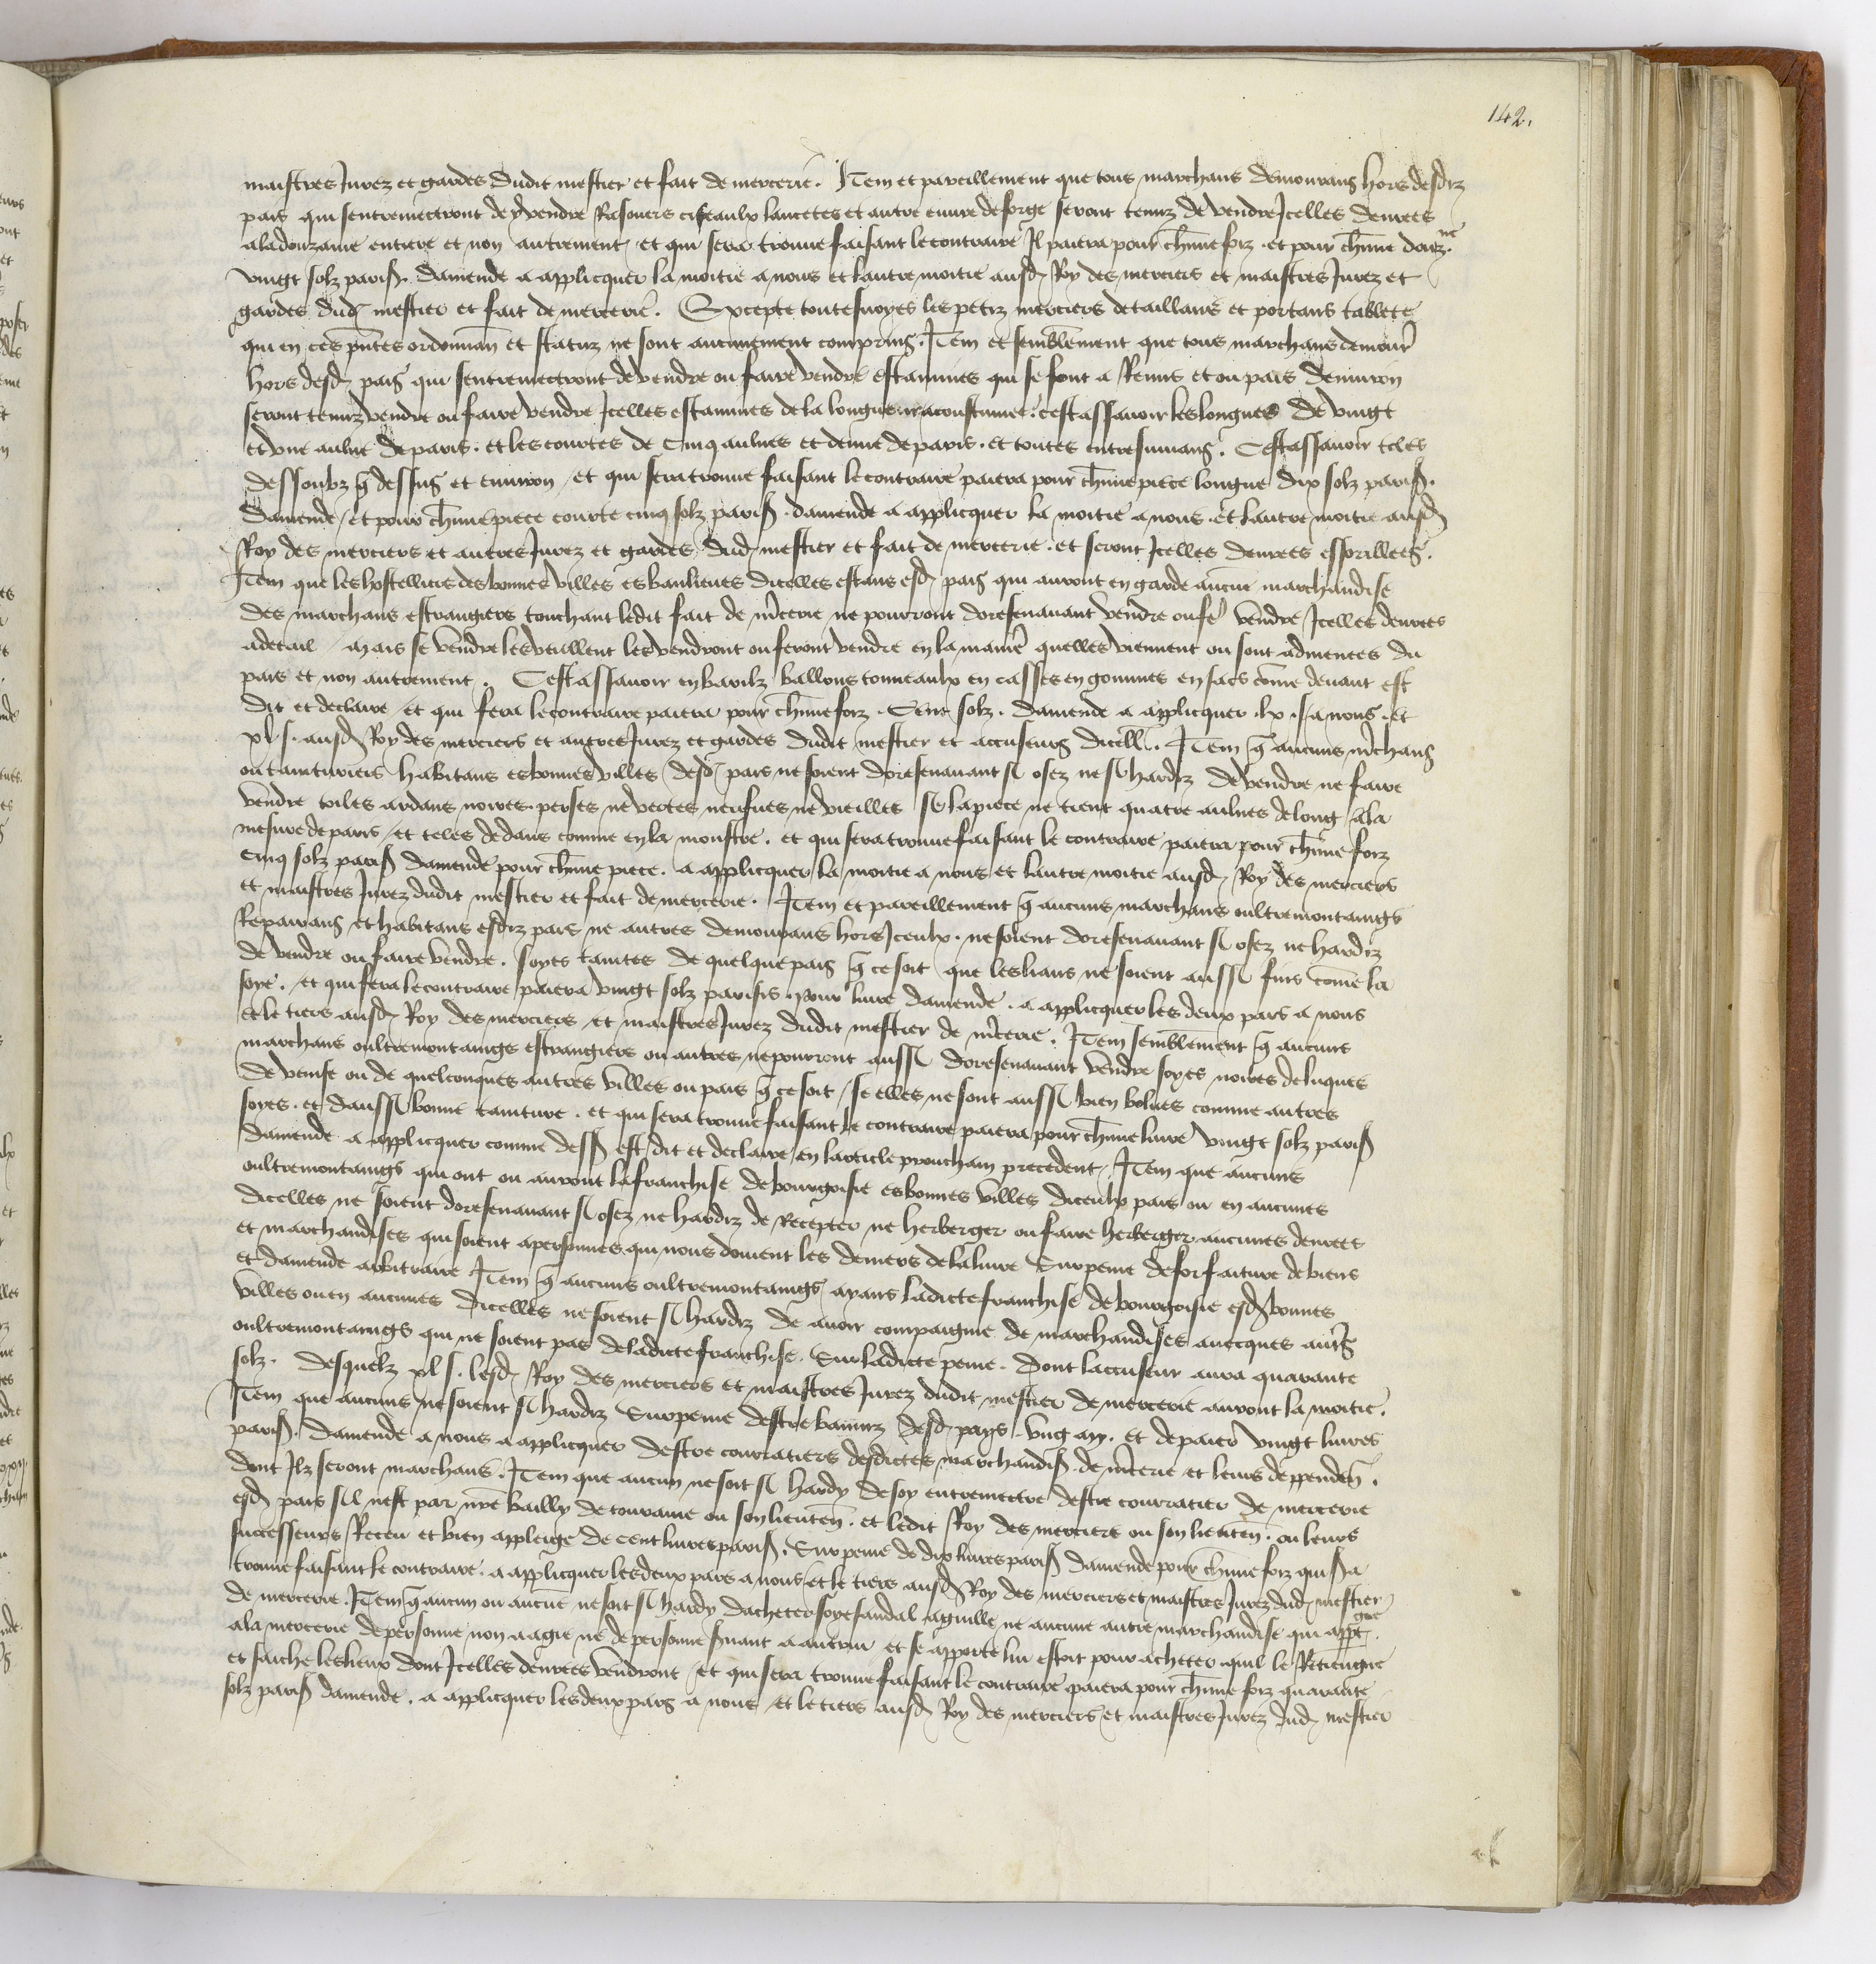 142.
maistres Jurez et gardes dudit mestier et fait de mercerie. Item et pareillement que tous marchans demourans hors desdiz
pais qui sentremectront de y vendre Rasouers ciseaulx lancetes et autre euure de forge seront tenuz de vendre Icelles denrees
ala douzaine entiere et non autrement / et qui sera trouue faisant le contraire Il paiera pour chune foiz . et pour chune douz.ne
vingt solz paris. damende a applicquer la moitie a nous et lautre moitie ausd Roy des merciers et maistres Jurez et
gardes dud mestier et fait de mercerie. Excepte toutesuoyes les petiz merciers detaillans et portans tablete
qui en ces pntes ordonnan et statuz ne sont aucunement comprins. Item et semblement que tous marchans demour
hors desd pais qui sentremectront de vendre ou faire vendre estamines qui se font a Reims et ou pais denuiron
seront tenuz vendre ou faire vendre Icelles estamines de la longueur acoustumee. cestassauoir les longues de vingt
et vne aulne de paris. et les courtes de Cinq aulnes et demie de paris. et toutes entresuiuans. Cestassauoir teles
dessoubz q dessus et enuiron / et qui sera trouue faisant le contraire paiera pour chune piece longue dix solz paris.
damende / et pour chune piece courte cinq solz paris. damende a applicquer la moitie a nous et lautre moitie ausd
Roy des merciers et autres Jurez et gardes dud mestier et fait de mercerie. et seront Icelles denrees essorillees.
Item que les hostelliers des bonnes villes es banlieues dicelles estans esd pais qui auront en garde aucune marchandise
des marchans estrangiers touchant ledit fait de mcerie ne pourront doresenauant vendre ou fe vendre Icelles denrees
adetail / Mais se vendre les veullent les vendront ou feront vendre en la maniere quelles viennent ou sont admenees du
pais et non autrement. Cestassauoir en barilz ballons tonneaulx en casses en gommes en sacs come deuant est
dit et declaire / et qui fera le contraire paiera pour chune foiz . Cent solz. damende a applicquer .lx. s. a nous. et
xl s. ausd Roy des merciers et autres Jurez et gardes dudit mestier et accuseurs dicell. Item q aucuns mchans
ou tainturiers habitans es bonnes villes desd pais ne soient doresenauant si osez ne si hardiz de vendre ne faire
vendre toiles ardans noires. perses ne vertes neufues ne vieilles se la piece ne tient quatre aulnes de long ala
mesure de paris / et teles dedans comme en la monstre. et qui sera trouue faisant le contraire paiera pour chune foiz
cinq solz paris damende pour chune piece. a applicquer la moitie a nous et lautre moitie ausd Roy des merciers
et maistres Jurez dudit mestier et fait de mercerie. Item et pareillement q aucuns marchans oultremontaings
Repairans et habitans esdiz pais ne autres demourans hors Iceulx. ne soient doresenauant si osez ne hardiz
de vendre ou faire vendre. soyes taintes de quelque pais q ce soit que les lians ne soient aussi fins come la
soye. et qui fera le contraire paiera vingt solz parisis. pour liure damende. a applicquer les deux pars a nous
et le tiers ausd Roy des merciers et maistres Jurez dudit mestier de mcerie. Item semblement q aucuns
marchans oultremontaings estrangiers ou autres ne pourront aussi doresenauant vendre soyes noires de luques
de venise ou de quelconques autres villes ou pais q ce soit / se elles ne sont aussi bien bolues comme autres
soyes. et daussi bonne tainture. et qui sera trouue faisant le contraire paiera pour chune liure vingt solz paris
damende a applicquer comme dess est dit et declaire en larticle prouchain precedent. Item que aucuns
oultremontaings qui ont ou auront la franchise de bourgoisie es bonnes villes diceulx pais ou en aucunes
dicelles ne soient doresenauant si osez ne hardiz de Recepter ne herberger ou faire herberger aucunes denrees
et marchandises qui soient apersonnes qui nous doiuent les deniers de la liure Sur peine de forfaiture de biens
et damende arbitraire Item q aucuns oultremontaings ayans ladicte franchise de bourgoisie esd bonnes
villes ou en aucunes dicelles ne soient si hardiz de auoir compaignie de marchandises auecques autres
oultremontaings qui ne soient pas de ladicte franchise. Sur ladicte peine. Dont laccuseur aura quarante
solz. desquelz xl s. lesd Roy des merciers et maistres Jurez dudit mestier de mercerie auront la moitie.
Item que aucuns ne soient si hardiz Sur peine destre banniz desd pays vng an. et de paier vingt liures
paris. damende a nous a applicquer destre courratiers desdictes marchandis. de mcerie et leurs deppenden.
dont Ilz seront marchans. Item que aucun ne soit si hardy de soy entremectre destre courratier de mercerie
esd pais sil nest par nre bailly de touraine ou son lieuten. et ledit Roy des merciers ou son lieuten. ou leurs
successeurs Receu et bien appleige de cent liures paris. Sur peine de dix liures paris damende pour chune foiz qui sa
trouue faisant le contraire. a applicquer les deux pars a nous et le tiers ausd Roy des merciers et maistres Jurez dud mestier
de mercerie. Item q aucun ou aucune ne soit si hardy dacheter soye sandal aguille ne aucune autre marchandise qui appt.gne
ala mercerie de personne non aagie ne de personne suant a autrui et se apporte lui estoit pour acheter quil le Retiengne
et saiche les lieux dont Icelles denrees vendront / et qui sera trouue faisant le contraire paiera pour chune foiz quarante
solz paris damende. a applicquer les deux pars a nous et le tiers ausd Roy des merciers et maistres Jurez dud mestier